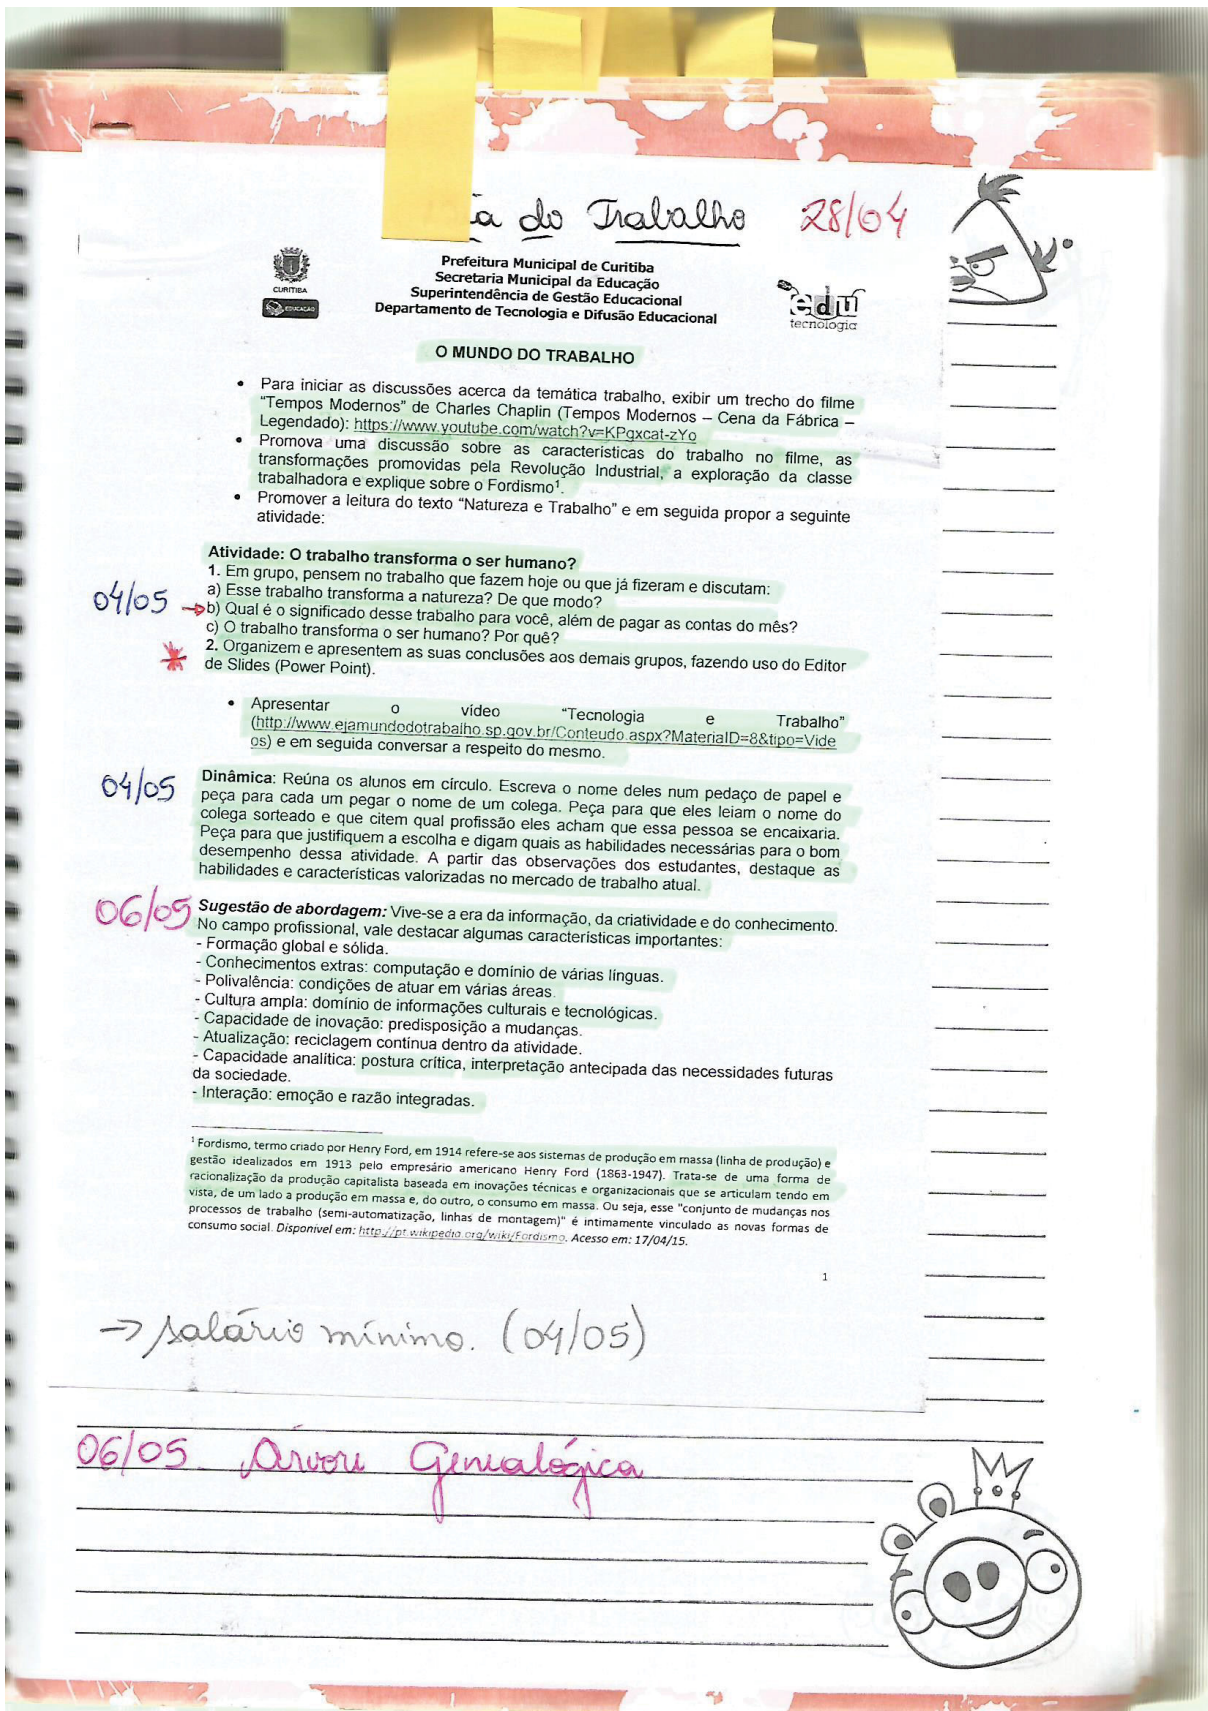 do Trabalho 28/04
CURITIBA
EDUCAÇÃO
Prefeitura Municipal de Curitiba
Secretaria Municipal da Educação
Superintendência de Gestão Educacional
Departamento de Tecnologia e Difusão Educacional
edu
tecnologia
O MUNDO DO TRABALHO
• Para iniciar as discussões acerca da temática trabalho, exibir um trecho do filme
"Tempos Modernos" de Charles Chaplin (Tempos Modernos – Cena da Fábrica –
Legendado): https://www.youtube.com/watch?v=KPgxcat-zYo
• Promova uma discussão sobre as características do trabalho no filme, as
transformações promovidas pela Revolução Industrial, a exploração da classe
trabalhadora e explique sobre o Fordismo¹.
• Promover a leitura do texto "Natureza e Trabalho" e em seguida propor a seguinte
atividade:
Atividade: O trabalho transforma o ser humano?
1. Em grupo, pensem no trabalho que fazem hoje ou que já fizeram e discutam:
a) Esse trabalho transforma a natureza? De que modo?
04/05 → b) Qual é o significado desse trabalho para você, além de pagar as contas do mês?
c) O trabalho transforma o ser humano? Por quê?
2. Organizem e apresentem as suas conclusões aos demais grupos, fazendo uso do Editor
de Slides (Power Point).
• Apresentar o vídeo "Tecnologia e Trabalho"
(http://www.ejamundodotrabalho.sp.gov.br/Conteudo.aspx?MateriaID=8&tipo=Vide
os) e em seguida conversar a respeito do mesmo.
04/05 Dinâmica: Reúna os alunos em círculo. Escreva o nome deles num pedaço de papel e
peça para cada um pegar o nome de um colega. Peça para que eles leiam o nome do
colega sorteado e que citem qual profissão eles acham que essa pessoa se encaixaria.
Peça para que justifiquem a escolha e digam quais as habilidades necessárias para o bom
desempenho dessa atividade. A partir das observações dos estudantes, destaque as
habilidades e características valorizadas no mercado de trabalho atual.
06/05 Sugestão de abordagem: Vive-se a era da informação, da criatividade e do conhecimento.
No campo profissional, vale destacar algumas características importantes:
- Formação global e sólida.
- Conhecimentos extras: computação e domínio de várias línguas.
- Polivalência: condições de atuar em várias áreas.
- Cultura ampla: domínio de informações culturais e tecnológicas.
- Capacidade de inovação: predisposição a mudanças.
- Atualização: reciclagem contínua dentro da atividade.
- Capacidade analítica: postura crítica, interpretação antecipada das necessidades futuras
da sociedade.
- Interação: emoção e razão integradas.
¹ Fordismo, termo criado por Henry Ford, em 1914 refere-se aos sistemas de produção em massa (linha de produção) e
gestão idealizados em 1913 pelo empresário americano Henry Ford (1863-1947). Trata-se de uma forma de
racionalização da produção capitalista baseada em inovações técnicas e organizacionais que se articulam tendo em
vista, de um lado a produção em massa e, do outro, o consumo em massa. Ou seja, esse "conjunto de mudanças nos
processos de trabalho (semi-automatização, linhas de montagem)" é intimamente vinculado as novas formas de
consumo social. Disponivel em: http://pt.wikipedia.org/wiki/Fordismo. Acesso em: 17/04/15.
1
→ salário mínimo. (04/05)
06/05 Árvore Genealógica